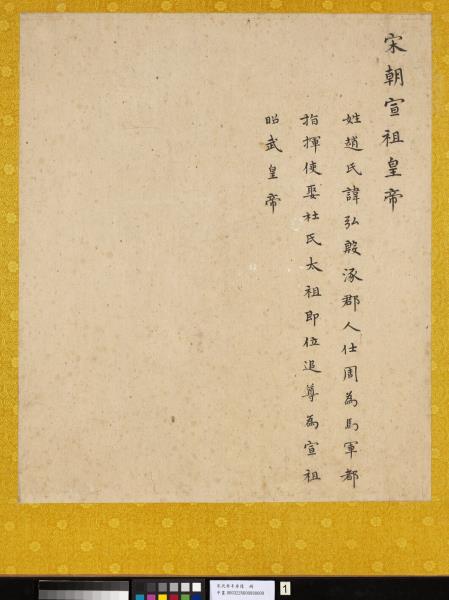 宋朝宣祖皇帝
姓趙氏諱弘殷涿郡人仕周為馬軍都
指揮使娶杜氏太祖即位追尊為宣祖
昭武皇帝
1